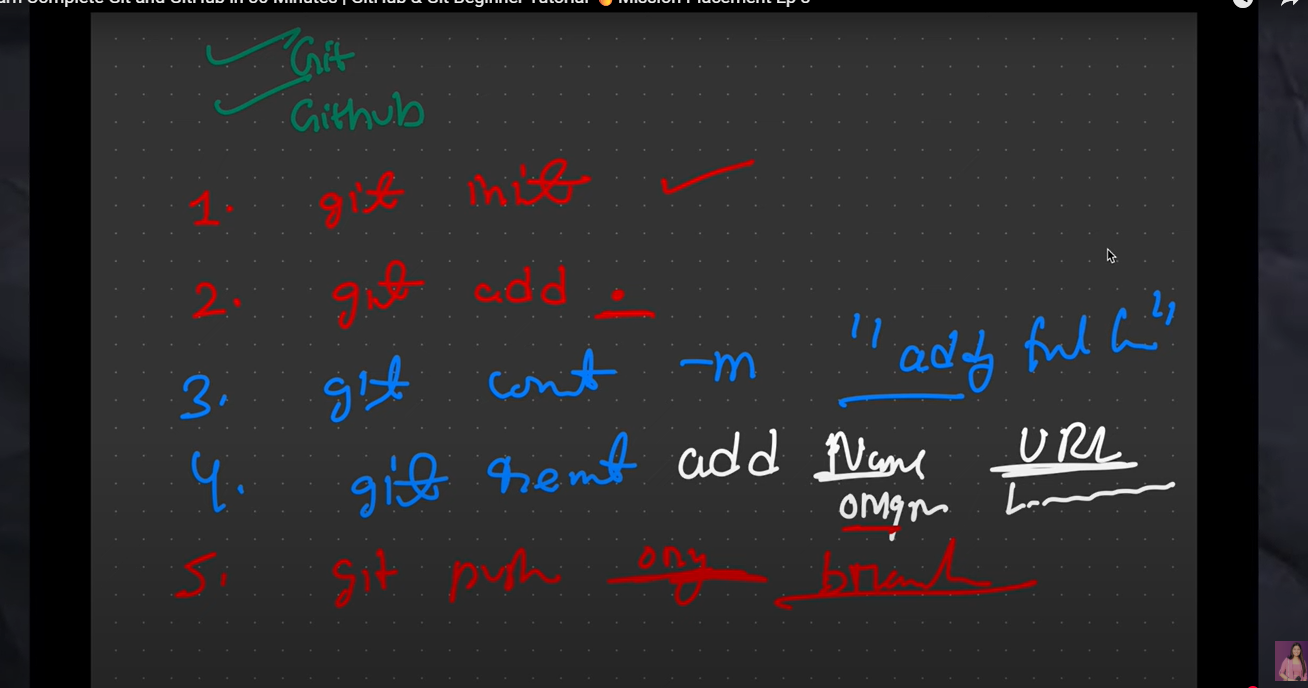 am Complete Git and GitHub in 30 Minutes | GitHub & Git Beginner Tutorial 🔥 Mission Placement Ep
Git
Github
1. git init
2. git add .
3. git comt -m "addg
4. git remt add Name URL
origin
5. git push orig branch